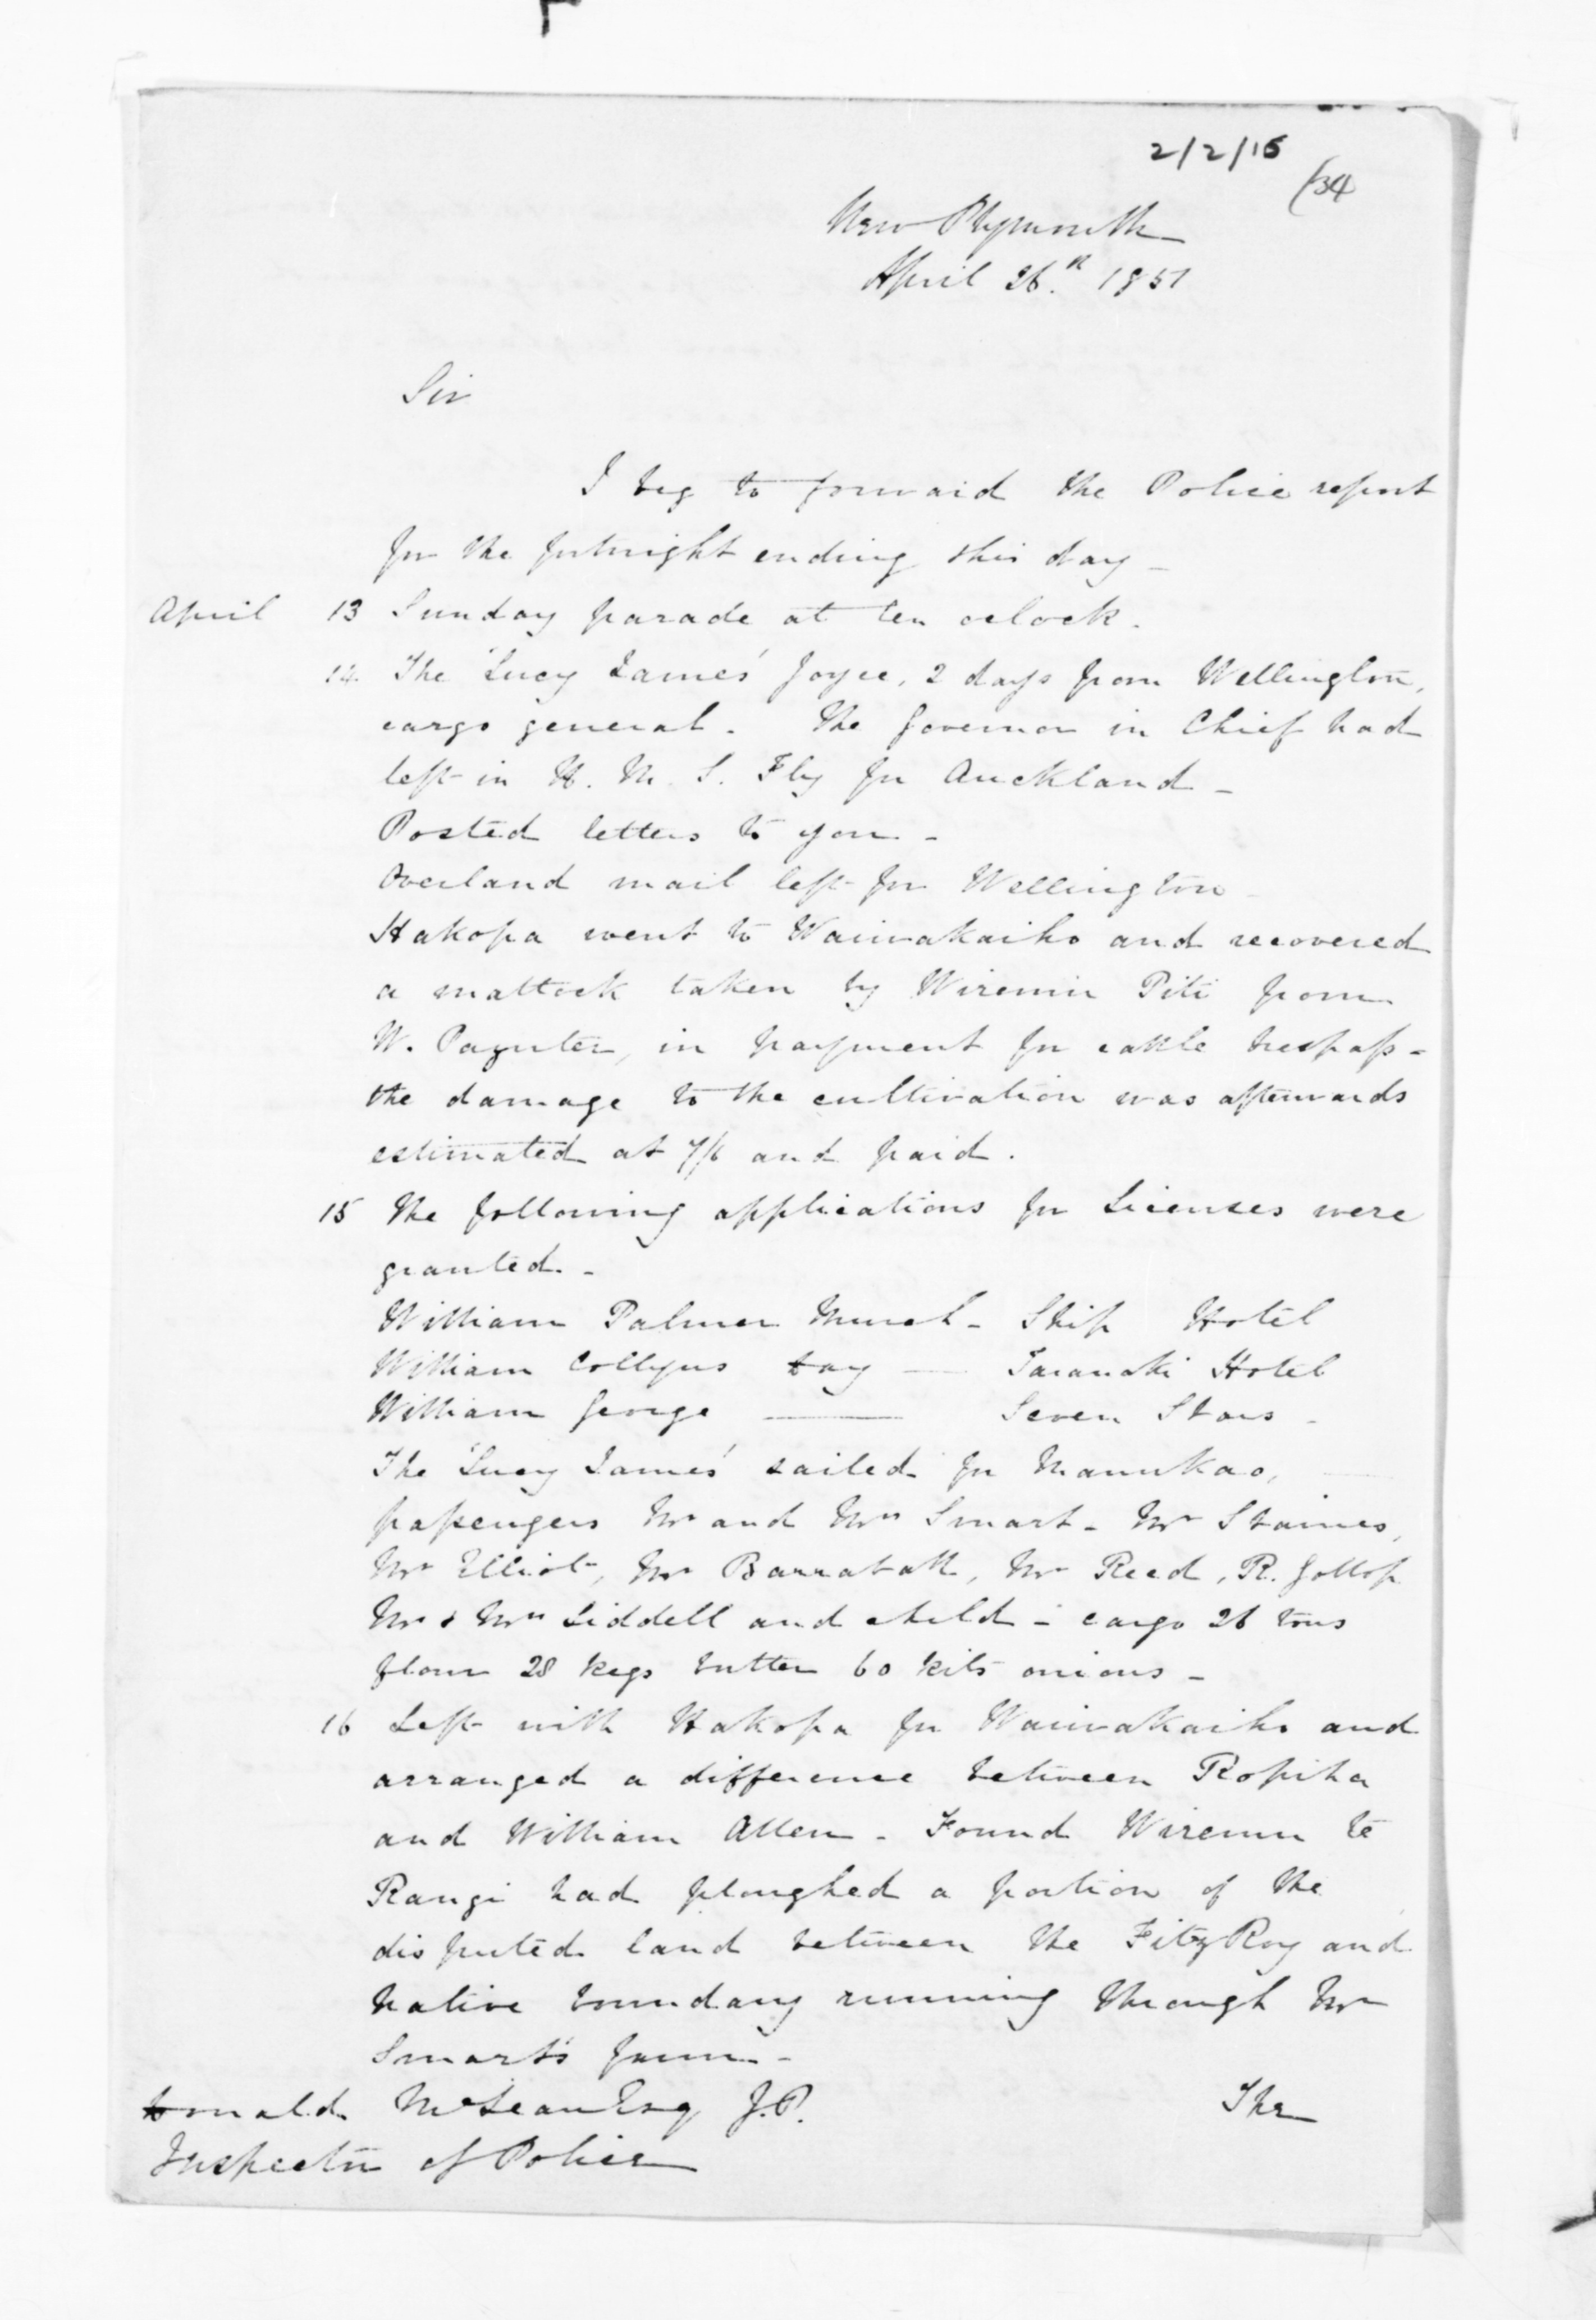 2/2/15
(34
New Plymouth
April 26.th 1851
Sir
I beg to forward the Police report
for the fortnight ending this day _
April 13 Sunday parade at ten oclock.
14. The 'Lucy James' Joyce, 2 days from Wellington,
cargo general. The Governor in Chief had
left in H. M. S. Fly for Auckland _
Posted letters to you. _
Overland mail left for Wellington
Hakopa went to Waiwakaiho and recovered
a mattock taken by Wiremu Piti from
W. Paynter, in payment for cattle trespass -
the damage to the cultivation was afterwards
estimated at 7/6 and paid.
15 The following applications for Licenses were
granted. _
William Palmer - Ship Hotel
William Collyns Hay — Taranaki Hotel
William George — Seven Stars _
The 'Lucy James' sailed for Manukao,
passengers Mr and Mrs Smart - Mr Staines,
Mr Elliot, Mr, Mr Reed, R. Gollop
Mr & Mrs Liddell and child - cargo 26 tons
flour 28 kegs butter 60 kits onions _
16 Left with Hakopa for Waiwakaiho and
arranged a difference between Ropiha
and William Allen. Found Wiremu te
Rangi had ploughed a portion of the
disputed land between the FitzRoy and
native boundary running through Mr
Smart's farm. -
The
Donald McLean Esq J.P.
Inspector of Police